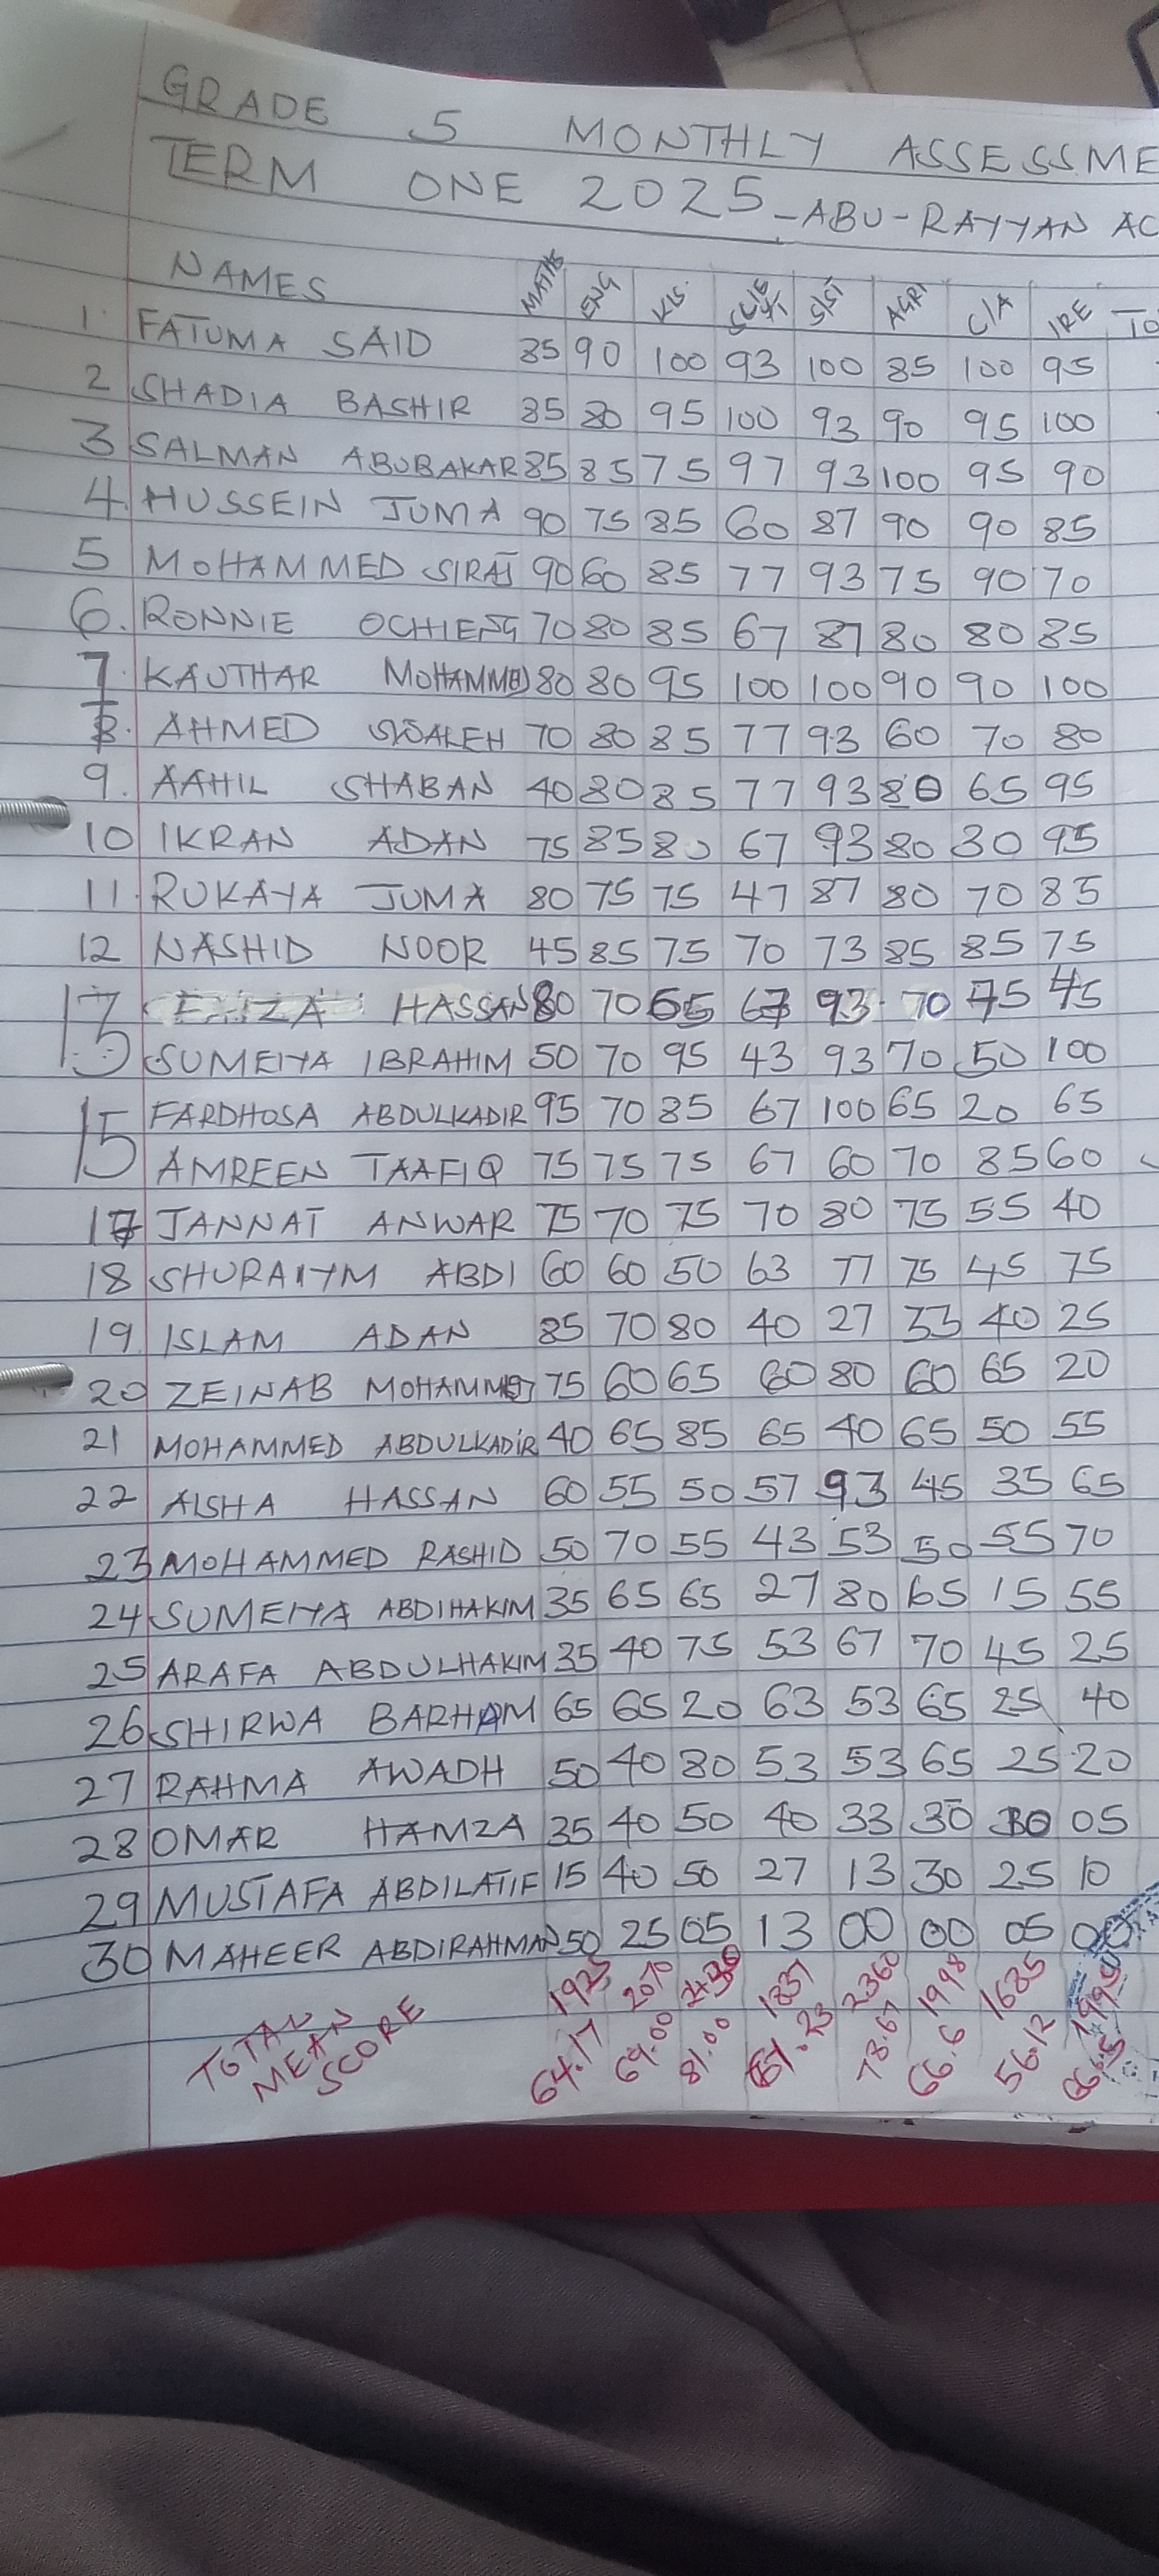 GRADE 5 MONTHLY ASSESSME
TERM ONE 2025 - ABU-RAYYAN AC
NAMES MATHS ENG KIS. SCIE S/ST AGRI C/A IRE TO
1. FATUMA SAID 85 90 100 93 100 85 100 95
2 SHADIA BASHIR 85 80 95 100 93 90 95 100
3 SALMAN ABUBAKAR 85 85 75 97 93 100 95 90
4. HUSSEIN JUMA 90 75 85 60 87 90 90 85
5 MOHAMMED SIRAJ 90 60 85 77 93 75 90 70
6. RONNIE OCHIENG 70 80 85 67 87 80 80 85
7. KAUTHAR MOHAMMED 80 80 95 100 100 90 90 100
8. AHMED SWALEH 70 80 85 77 93 60 70 80
9. AAHIL SHABAN 40 80 85 77 93 80 65 95
10 IKRAN ADAN 75 85 80 67 93 80 30 95
11. RUKAYA JUMA 80 75 75 47 87 80 70 85
12 NASHID NOOR 45 85 75 70 73 85 85 75
13 HASSAN 80 70 65 67 93 70 75 45
SUMEIYA IBRAHIM 50 70 95 43 93 70 50 100
15 FARDHOSA ABDULKADIR 95 70 85 67 100 65 20 65
AMREEN TAAFIQ 75 75 75 67 60 70 85 60
17 JANNAT ANWAR 75 70 75 70 80 75 55 40
18 SHURAIYM ABDI 60 60 50 63 77 75 45 75
19. ISLAM ADAN 85 70 80 40 27 33 40 25
20 ZEINAB MOHAMMED 75 60 65 60 80 60 65 20
21 MOHAMMED ABDULKADIR 40 65 85 65 40 65 50 55
22 AISHA HASSAN 60 55 50 57 93 45 35 65
23 MOHAMMED RASHID 50 70 55 43 53 50 55 70
24 SUMEIYA ABDIHAKIM 35 65 65 27 80 65 15 55
25 ARAFA ABDULHAKIM 35 40 75 53 67 70 45 25
26 SHIRWA BARHAM 65 65 20 63 53 65 25 40
27 RAHMA AWADH 50 40 80 53 53 65 25 20
28 OMAR HAMZA 35 40 50 40 33 30 30 05
29 MUSTAFA ABDILATIF 15 40 50 27 13 30 25 10
30 MAHEER ABDIRAHMAN 50 25 05 13 00 00 05 00
TOTAL 1925 2070 2430 1837 2360 1998 1685 1995
MEAN SCORE 64.17 69.00 81.00 61.23 78.67 66.6 56.12 66.5